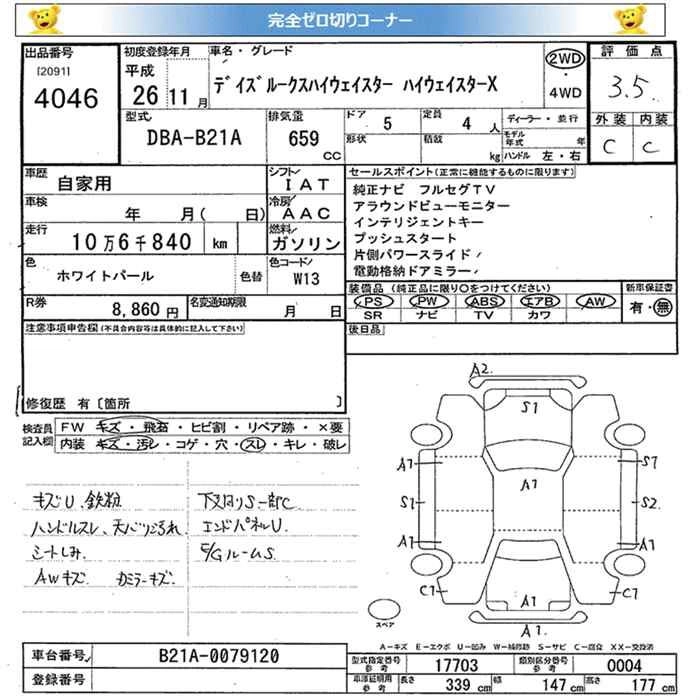 完全ゼロ切りコーナー
出品番号 初度登録年月 車名・グレード 評価点
[2091] 平成 デイズルークスハイウェイスター ハイウェイスターX 2WD
4046 26 11月 ・ 3.5
4WD
型式 排気量 ドア 5 定員 4 人 ディーラー・並行 外装 内装
DBA-B21A 659 形状 積載 モデル年式 年 C C
CC kg ハンドル 左・右
車歴 自家用 シフト IAT セールスポイント(正常に機能するものに限ります)
車検 年 月( 日) 冷房 AAC 純正ナビ フルセグTV
アラウンドビューモニター
走行 10万6千840 km 燃料 ガソリン インテリジェントキー
プッシュスタート
色 ホワイトパール 色替 色コード W13 片側パワースライド
電動格納ドアミラー
R券 8,860円 名変通知期限 月 日 装備品(純正品に限り○をつけてください) 新車保証書
PS PW ABS エアB AW 有・無
SR ナビ TV カワ
注意事項申告欄(不具合内容等は具体的に記入して下さい) 後日品
修復歴 有〔箇所 〕
検査員記入欄 FW キズ・飛石・ヒビ割・リペア跡・×要
内装 キズ・汚レ・コゲ・穴・スレ・キレ・破レ
キズU、鉄粉 下又はりS一部C
ハンドルスレ、天バリ汚れ エンドパネルU.
シートしみ. E/GルームS.
AWキズ
A2.
S1
A1 A1 S1
S1 S2
A1 A1
C1 C1
A1
A1
スペア
A-キズ E-エクボ U-凹み W-補修跡 S-サビ C-腐食 XX-交換済
車台番号 B21A-0079120 型式指定番号 参考 17703 類別区分番号 参考 0004
登録番号 車庫証明用 参考 長さ 339 cm 幅 147 cm 高さ 177 cm